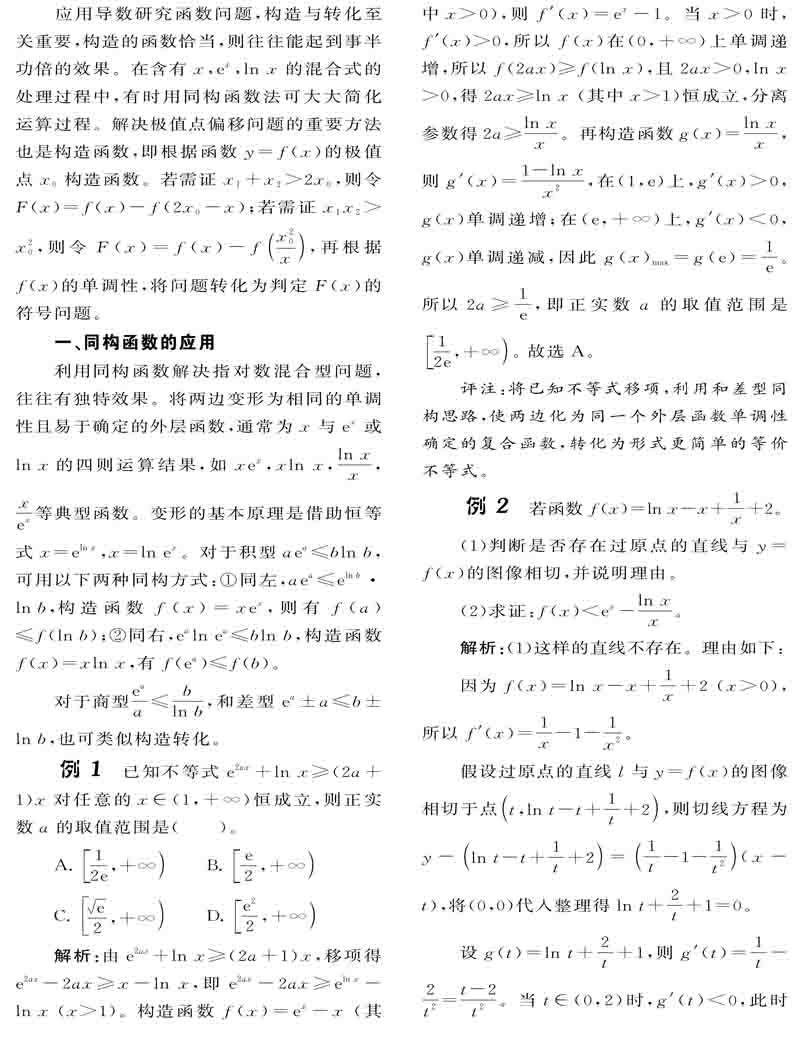 应用导数研究函数问题,构造与转化至
关重要,构造的函数恰当,则往往能起到事半
功倍的效果。在含有 x,eˣ,ln x 的混合式的
处理过程中,有时用同构函数法可大大简化
运算过程。解决极值点偏移问题的重要方法
也是构造函数,即根据函数 y=f(x)的极值
点 x₀ 构造函数。若需证 x₁+x₂>2x₀,则令
F(x)=f(x)-f(2x₀-x);若需证 x₁x₂>
x₀²,则令 F(x)=f(x)-f(x₀²/x),再根据
f(x)的单调性,将问题转化为判定 F(x)的
符号问题。
一、同构函数的应用
利用同构函数解决指对数混合型问题,
往往有独特效果。将两边变形为相同的单调
性且易于确定的外层函数,通常为 x 与 eˣ 或
ln x 的四则运算结果,如 xeˣ,xln x,ln x/x,
x/eˣ等典型函数。变形的基本原理是借助恒等
式 x=e^(ln x),x=ln eˣ。对于积型 aeᵃ≤bln b,
可用以下两种同构方式:①同左,aeᵃ≤e^(ln b)·
ln b,构造函数 f(x)=xeˣ,则有 f(a)
≤f(ln b);②同右,eᵃln eᵃ≤bln b,构造函数
f(x)=xln x,有 f(eᵃ)≤f(b)。
对于商型eᵃ/a≤b/ln b,和差型 eᵃ±a≤b±
ln b,也可类似构造转化。
例 1 已知不等式 e^(2ax)+ln x≥(2a+
1)x 对任意的 x∈(1,+∞)恒成立,则正实
数 a 的取值范围是( )。
A.[1/2e,+∞) B.[e/2,+∞)
C.[√e/2,+∞) D.[e²/2,+∞)
解析:由 e^(2ax)+ln x≥(2a+1)x,移项得
e^(2ax)-2ax≥x-ln x,即 e^(2ax)-2ax≥e^(ln x)-
ln x (x>1)。构造函数 f(x)=eˣ-x (其
中 x>0),则 f′(x)=eˣ-1。当 x>0 时,
f′(x)>0,所以 f(x)在(0,+∞)上单调递
增,所以 f(2ax)≥f(ln x),且 2ax>0,ln x
>0,得 2ax≥ln x (其中 x>1)恒成立,分离
参数得 2a≥ln x/x。再构造函数 g(x)=ln x/x,
则 g′(x)=(1-ln x)/x²,在(1,e)上,g′(x)>0,
g(x)单调递增;在(e,+∞)上,g′(x)<0,
g(x)单调递减,因此 g(x)max=g(e)=1/e。
所以 2a≥1/e,即正实数 a 的取值范围是
[1/2e,+∞)。故选 A。
评注:将已知不等式移项,利用和差型同
构思路,使两边化为同一个外层函数单调性
确定的复合函数,转化为形式更简单的等价
不等式。
例 2 若函数 f(x)=ln x-x+1/x+2。
(1)判断是否存在过原点的直线与 y=
f(x)的图像相切,并说明理由。
(2)求证:f(x)<eˣ-ln x/x。
解析:(1)这样的直线不存在。理由如下:
因为 f(x)=ln x-x+1/x+2 (x>0),
所以 f′(x)=1/x-1-1/x²。
假设过原点的直线 l 与 y=f(x)的图像
相切于点(t,ln t-t+1/t+2),则切线方程为
y-(ln t-t+1/t+2)=(1/t-1-1/t²)(x-
t),将(0,0)代入整理得 ln t+2/t+1=0。
设 g(t)=ln t+2/t+1,则 g′(t)=1/t-
2/t²=(t-2)/t²。当 t∈(0,2)时,g′(t)<0,此时